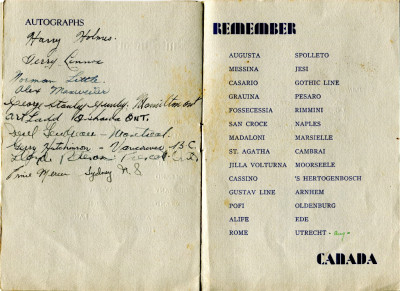 AUTOGRAPHS
Harry Holmes.
Terry
Norman Little.
Alex
George Stanley Hamilton Ont
Art Ladd ONT.
- Montreal
Gerry Hutchinson - Vancouver B.C.
Lloyd
Prescott Ont.
Sydney N S
REMEMBER
AUGUSTA SPOLLETO
MESSINA JESI
CASARIO GOTHIC LINE
GRAUINA PESARO
FOSSECESSIA RIMMINI
SAN CROCE NAPLES
MADALONI MARSIELLE
ST. AGATHA CAMBRAI
JILLA VOLTURNA MOORSEELE
CASSINO 'S HERTOGENBOSCH
GUSTAV LINE ARNHEM
POFI OLDENBURG
ALIFE EDE
ROME UTRECHT -
CANADA